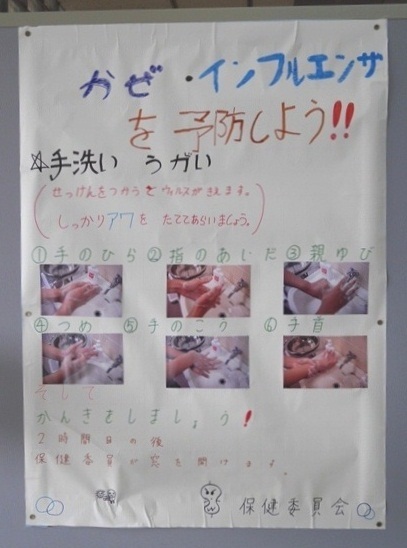 かぜ・インフルエンザ
を予防しよう!!
☆手洗い うがい
(せっけんをつかうとウィルスがきえます。
しっかりアワを たててあらいましょう。)
①手のひら ②指のあいだ ③親ゆび
④つめ ⑤手のこう ⑥手首
そして
かんきをしましょう!
2時間目の後
保健委員が窓を開けます。
保健委員会